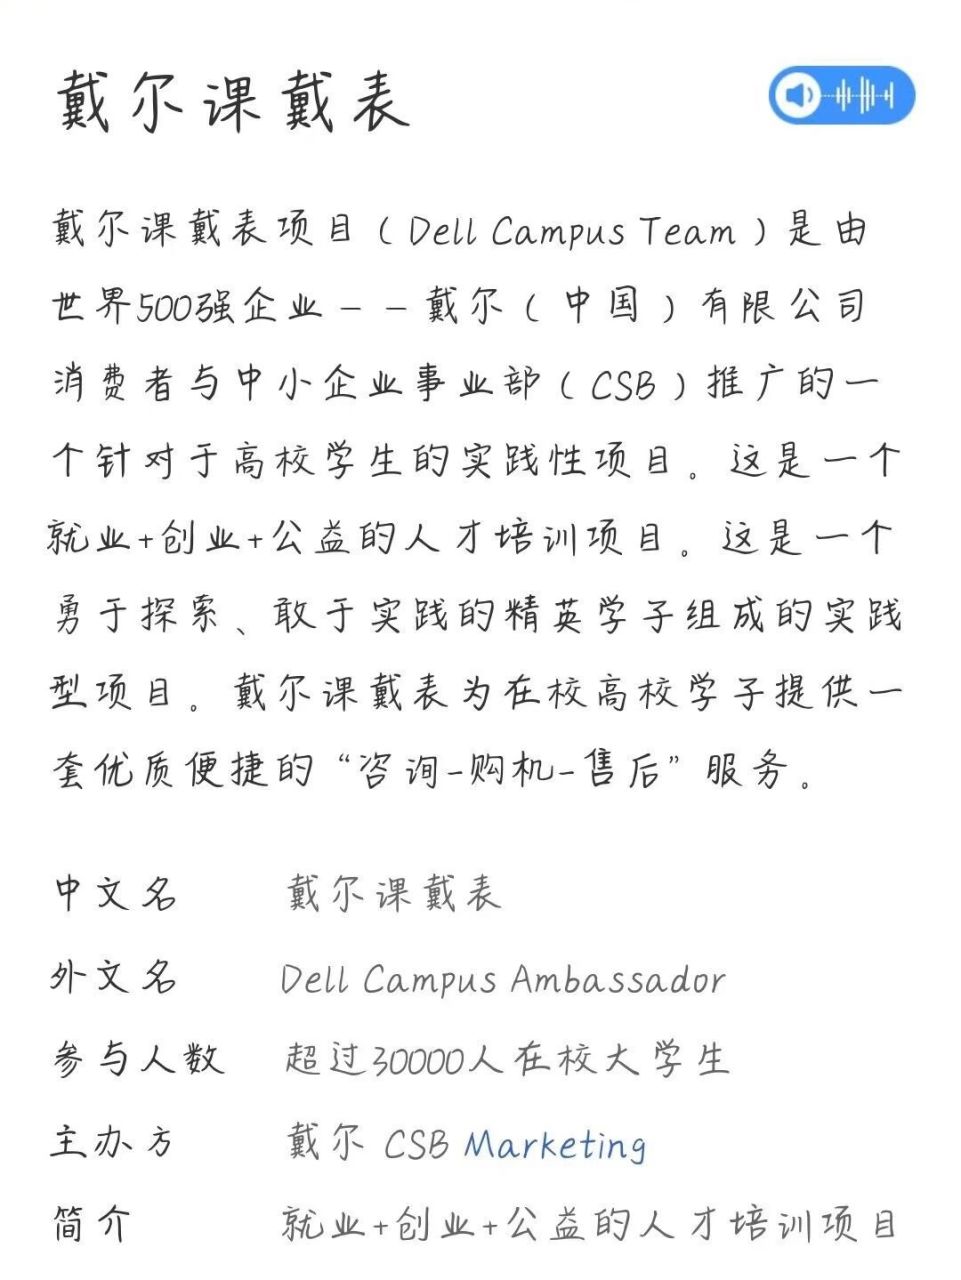 戴尔课戴表
戴尔课戴表项目（Dell Campus Team）是由
世界500强企业——戴尔（中国）有限公司
消费者与中小企业事业部（CSB）推广的一
个针对于高校学生的实践性项目。这是一个
就业+创业+公益的人才培训项目。这是一个
勇于探索、敢于实践的精英学子组成的实践
型项目。戴尔课戴表为在校高校学子提供一
套优质便捷的“咨询-购机-售后”服务。
中文名 戴尔课戴表
外文名 Dell Campus Ambassador
参与人数 超过30000人在校大学生
主办方 戴尔 CSB Marketing
简介 就业+创业+公益的人才培训项目